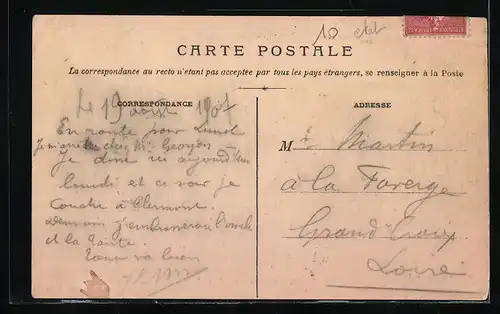 10
CARTE POSTALE
La correspondance au recto n'étant pas acceptée par tous les pays étrangers, se renseigner à la Poste
CORRESPONDANCE
Le 19 août 1907
En route pour
Je m'arrête chez Mr Georjon
Je dîne ici aujourd'hui
lundi et ce soir je
couche à Clermont.
Demain j'embrasserai l'oncle
et la tante.
Tout va bien
ADRESSE
M Martin
à la Faverge
Grand'Croix
Loire